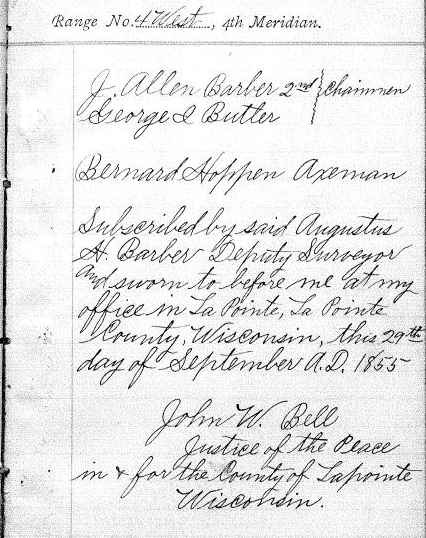 Range No. 4 West, 4th Meridian.
J. Allen Barber 2nd } Chainmen
George I Butler
Bernard Hoppen Axeman
Subscribed by said Augustus
H. Barber Deputy Surveyor
and sworn to before me at my
office in La Pointe, La Pointe
County, Wisconsin, this 29th
day of September A.D. 1855
John W. Bell
Justice of the Peace
in & for the County of Lapointe
Wisconsin.